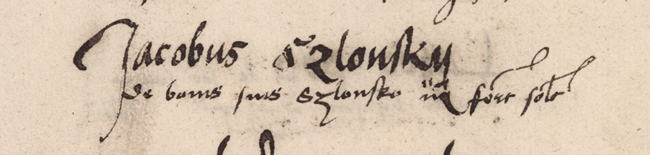 Jacobus Szlonsky
de bonis suis Szlonsko fort solt